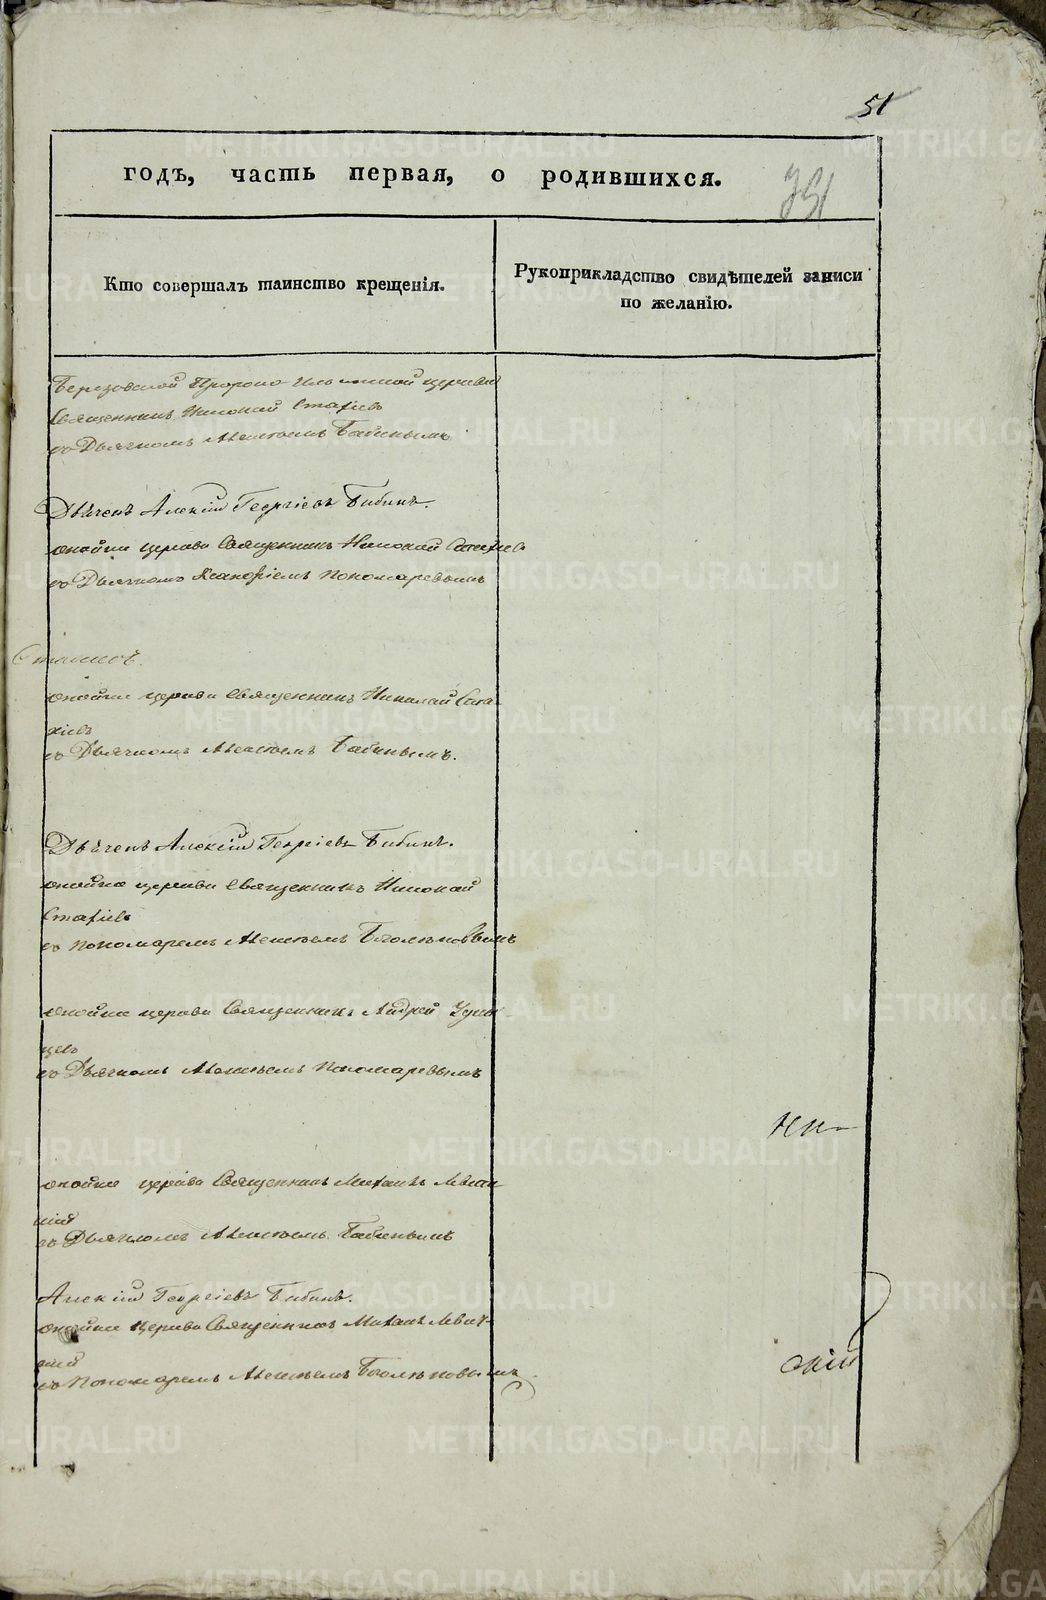 51
годъ, часть первая, о родившихся.
351
Кто совершалъ таинство крещенія.
Рукоприкладство свидѣтелей записи
по желанію.
Березовской Пророко-Ильинской церкви
Священникъ Николай Стахіевъ
съ Дьячкомъ Алексѣемъ Бабинымъ
Дьячекъ Алексій Георгіевъ Бабинъ.
оной же церкви Священникъ Николай Стахіев
съ Дьячкомъ Пономаревымъ
оной же церкви Священникъ Николай Ста
хіевъ
съ Дьячкомъ Алексѣемъ Бабинымъ.
Дьячекъ Алексій Георгіевъ Бабинъ.
оной же церкви Священникъ Николай
Стахіевъ
съ Пономаремъ Алексѣемъ
оной же церкви Священникъ Андрей
цевъ
съ Дьячкомъ Алексѣемъ Пономаревымъ
оной же церкви Священникъ Михаилъ Леви
кій
съ Дьячкомъ Алексѣемъ Бабинымъ
Алексій Георгіевъ Бабинъ.
оной же Церкви Священникъ Михаилъ Левиц
кій
съ Пономаремъ Алексѣемъ
скій
METRIKI.GASO-URAL.RU